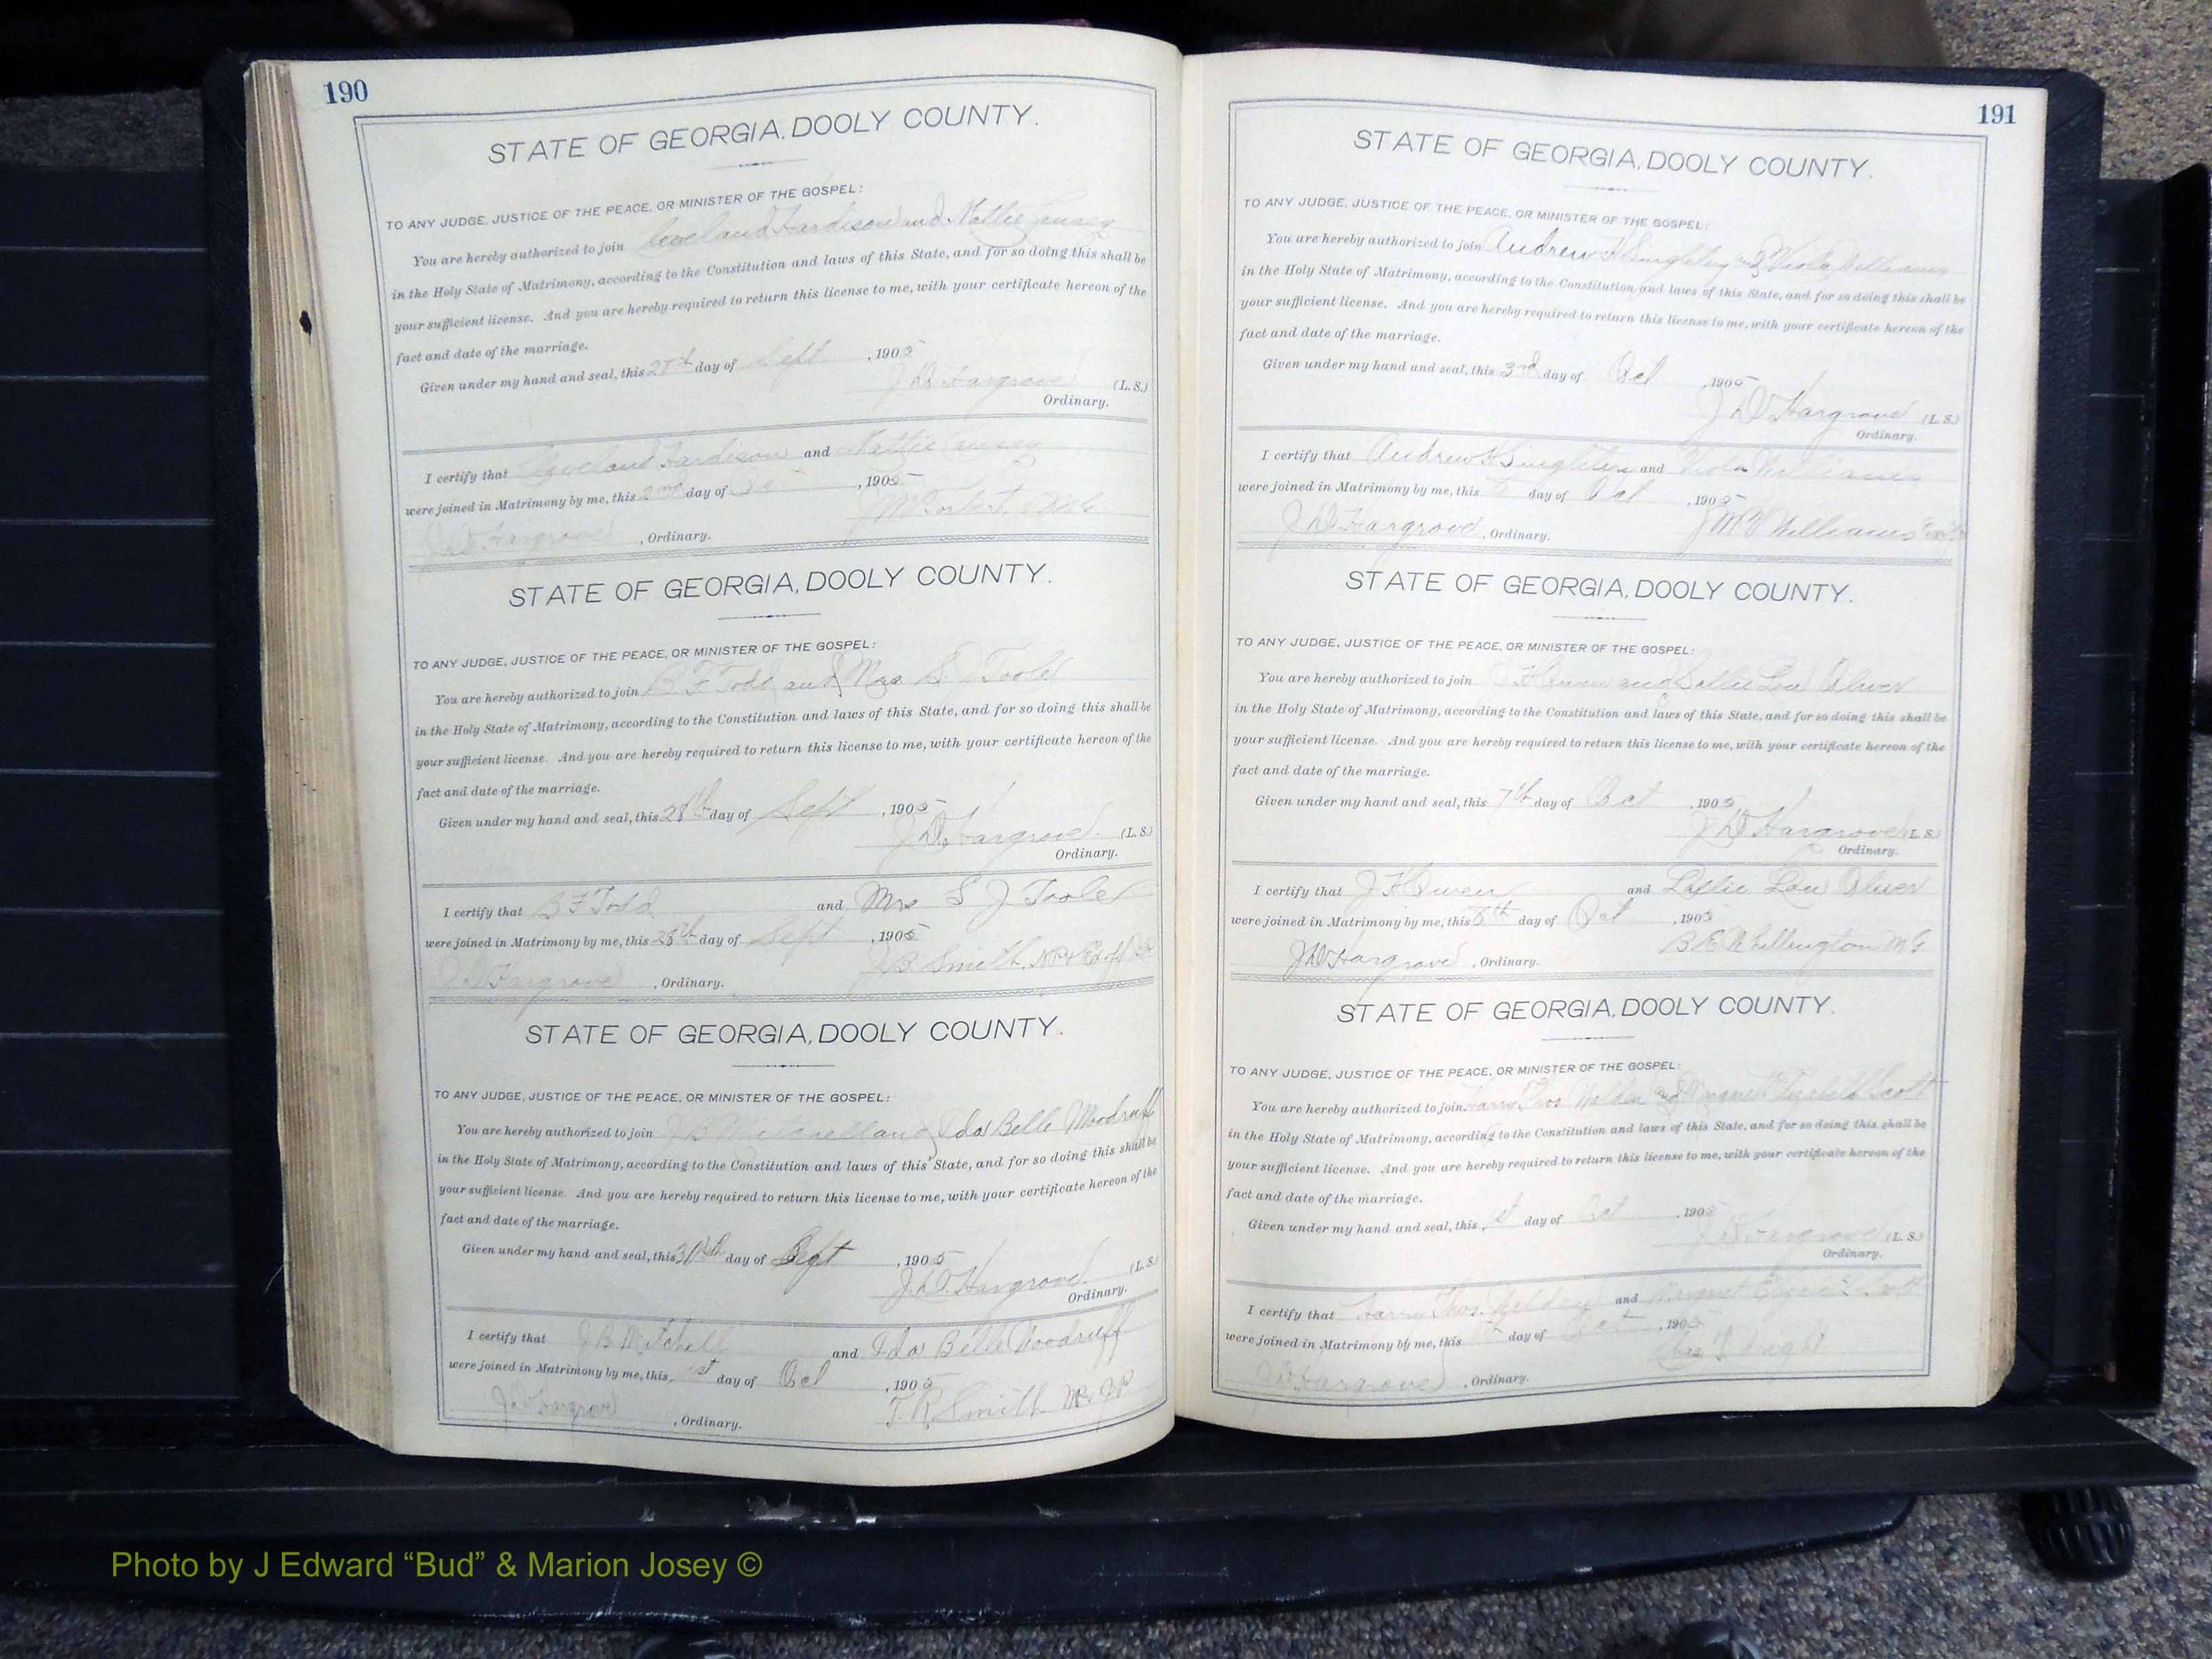 190
STATE OF GEORGIA, DOOLY COUNTY.
TO ANY JUDGE, JUSTICE OF THE PEACE, OR MINISTER OF THE GOSPEL:
You are hereby authorized to join Cleveland Hardison and Mattie
in the Holy State of Matrimony, according to the Constitution and laws of this State, and for so doing this shall be
your sufficient license. And you are hereby required to return this license to me, with your certificate hereon of the
fact and date of the marriage.
Given under my hand and seal, this 27th day of Sept, 1905
J D Hargrove (L. S.)
Ordinary.
I certify that Cleveland Hardison and Mattie
were joined in Matrimony by me, this 2nd day of Oct, 1905
J D Hargrove, Ordinary.
STATE OF GEORGIA, DOOLY COUNTY.
TO ANY JUDGE, JUSTICE OF THE PEACE, OR MINISTER OF THE GOSPEL:
You are hereby authorized to join B. F Todd and Mrs S. J Toole
in the Holy State of Matrimony, according to the Constitution and laws of this State, and for so doing this shall be
your sufficient license. And you are hereby required to return this license to me, with your certificate hereon of the
fact and date of the marriage.
Given under my hand and seal, this 28th day of Sept, 1905
J. D. Hargrove. (L. S.)
Ordinary.
I certify that B F Todd and Mrs S J Toole
were joined in Matrimony by me, this 28th day of Sept, 1905
J B Smith, NP
J D Hargrove, Ordinary.
STATE OF GEORGIA, DOOLY COUNTY.
TO ANY JUDGE, JUSTICE OF THE PEACE, OR MINISTER OF THE GOSPEL:
You are hereby authorized to join J B Mitchell and Ida Belle Woodruff
in the Holy State of Matrimony, according to the Constitution and laws of this State, and for so doing this shall be
your sufficient license. And you are hereby required to return this license to me, with your certificate hereon of the
fact and date of the marriage.
Given under my hand and seal, this 30th day of Sept, 1905
J. D. Hargrove. (L. S.)
Ordinary.
I certify that J B Mitchell and Ida Belle Woodruff
were joined in Matrimony by me, this 1st day of Oct, 1905
J D Hargrove, Ordinary. T. R Smith
191
STATE OF GEORGIA, DOOLY COUNTY.
TO ANY JUDGE, JUSTICE OF THE PEACE, OR MINISTER OF THE GOSPEL:
You are hereby authorized to join Andrew H Singletery and Viola Williams
in the Holy State of Matrimony, according to the Constitution and laws of this State, and for so doing this shall be
your sufficient license. And you are hereby required to return this license to me, with your certificate hereon of the
fact and date of the marriage.
Given under my hand and seal, this 3rd day of Oct, 1905
J D Hargrove (L. S.)
Ordinary.
I certify that Andrew H Singletery and Viola Williams
were joined in Matrimony by me, this day of Oct, 1905
J D Hargrove, Ordinary. J M Williams
STATE OF GEORGIA, DOOLY COUNTY.
TO ANY JUDGE, JUSTICE OF THE PEACE, OR MINISTER OF THE GOSPEL:
You are hereby authorized to join J H Owen and Sallie Lou Oliver
in the Holy State of Matrimony, according to the Constitution and laws of this State, and for so doing this shall be
your sufficient license. And you are hereby required to return this license to me, with your certificate hereon of the
fact and date of the marriage.
Given under my hand and seal, this 7th day of Oct, 1905
J D Hargrove (L. S.)
Ordinary.
I certify that J H Owen and Sallie Lou Oliver
were joined in Matrimony by me, this 8th day of Oct, 1905
B. E. Whittington M G
J D Hargrove, Ordinary.
STATE OF GEORGIA, DOOLY COUNTY.
TO ANY JUDGE, JUSTICE OF THE PEACE, OR MINISTER OF THE GOSPEL:
You are hereby authorized to join Harry Thos and Margaret Scott
in the Holy State of Matrimony, according to the Constitution and laws of this State, and for so doing this shall be
your sufficient license. And you are hereby required to return this license to me, with your certificate hereon of the
fact and date of the marriage.
Given under my hand and seal, this day of Oct, 1905
J D Hargrove (L. S.)
Ordinary.
I certify that Harry Thos. and Margaret Scott
were joined in Matrimony by me, this day of Oct, 1905
J D Hargrove, Ordinary.
Photo by J Edward “Bud” & Marion Josey ©